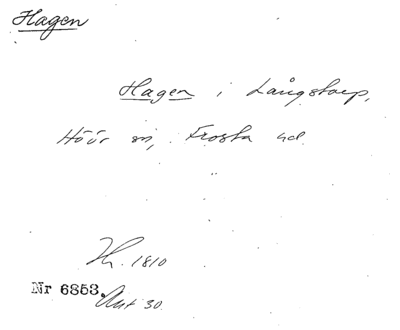 Hagen
Hagen i Långstorp,
Höör sn, Frosta hd.
1810
Nr 6853.
30.